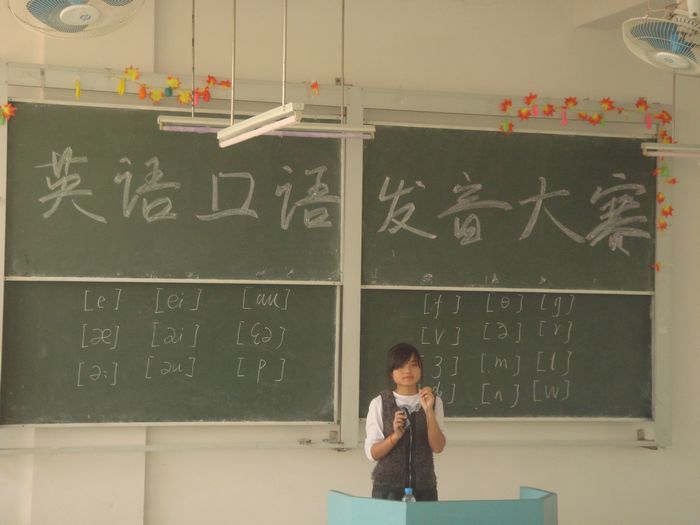 英语口语发音大赛
[e] [ei] [au]
[æ] [ai] [ɛə]
[ə:] [əu] [p]
[f] [θ] [g]
[v] [ə] [r]
[m] [l]
[n] [w]